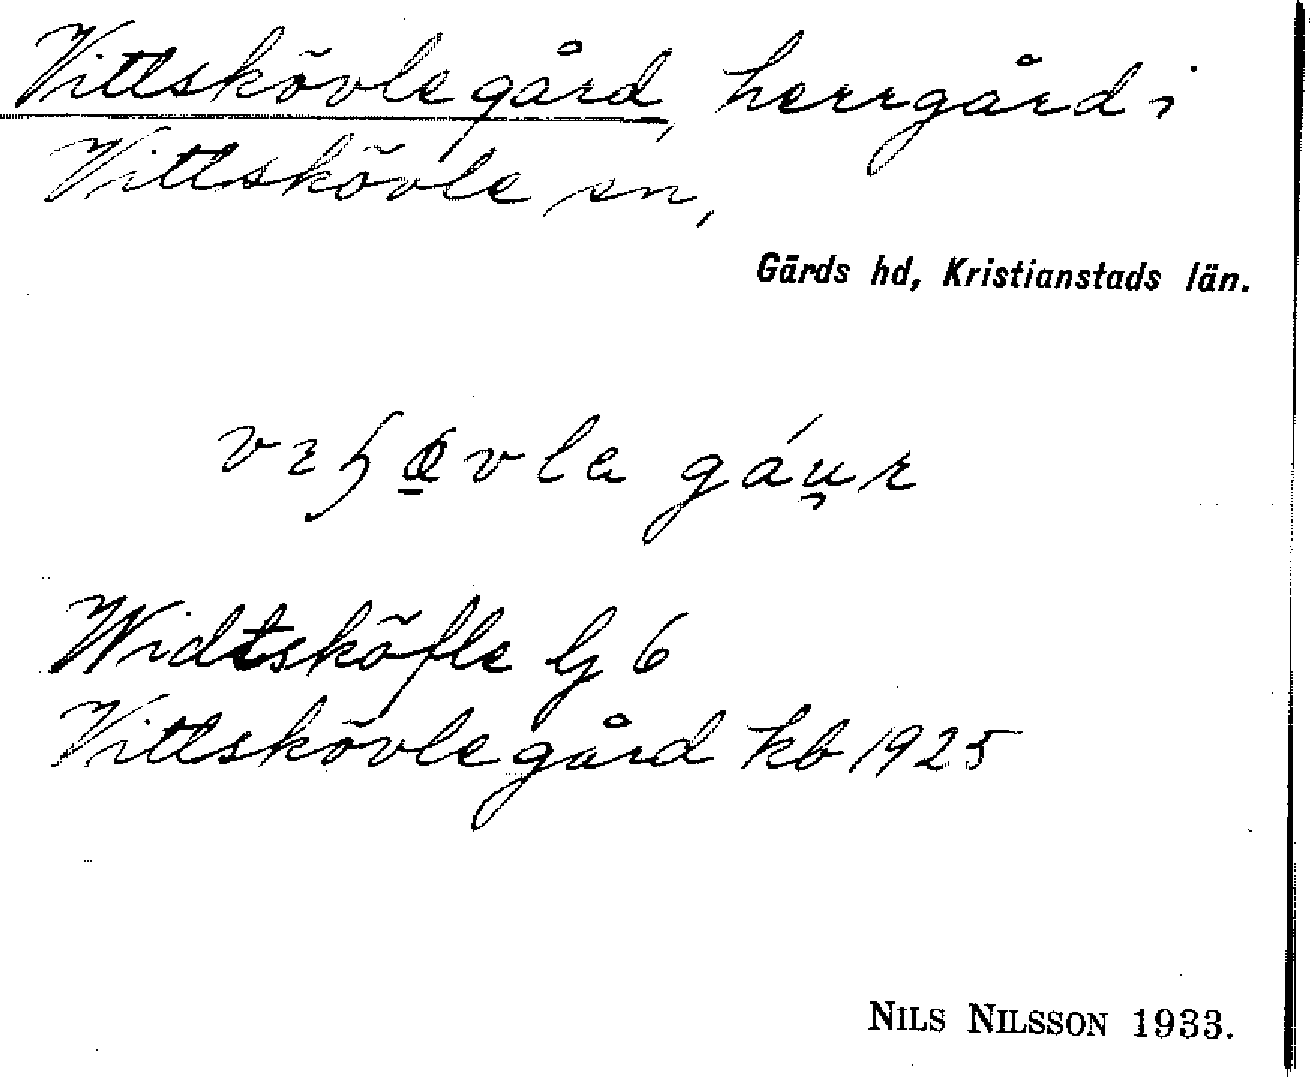 Vittskövlegård, herrgård i
Vittskövle sn,
Gärds hd, Kristianstads län.
Widtsköfle Gj 6
Vittskövlegård kb 1925
NILS NILSSON 1933.